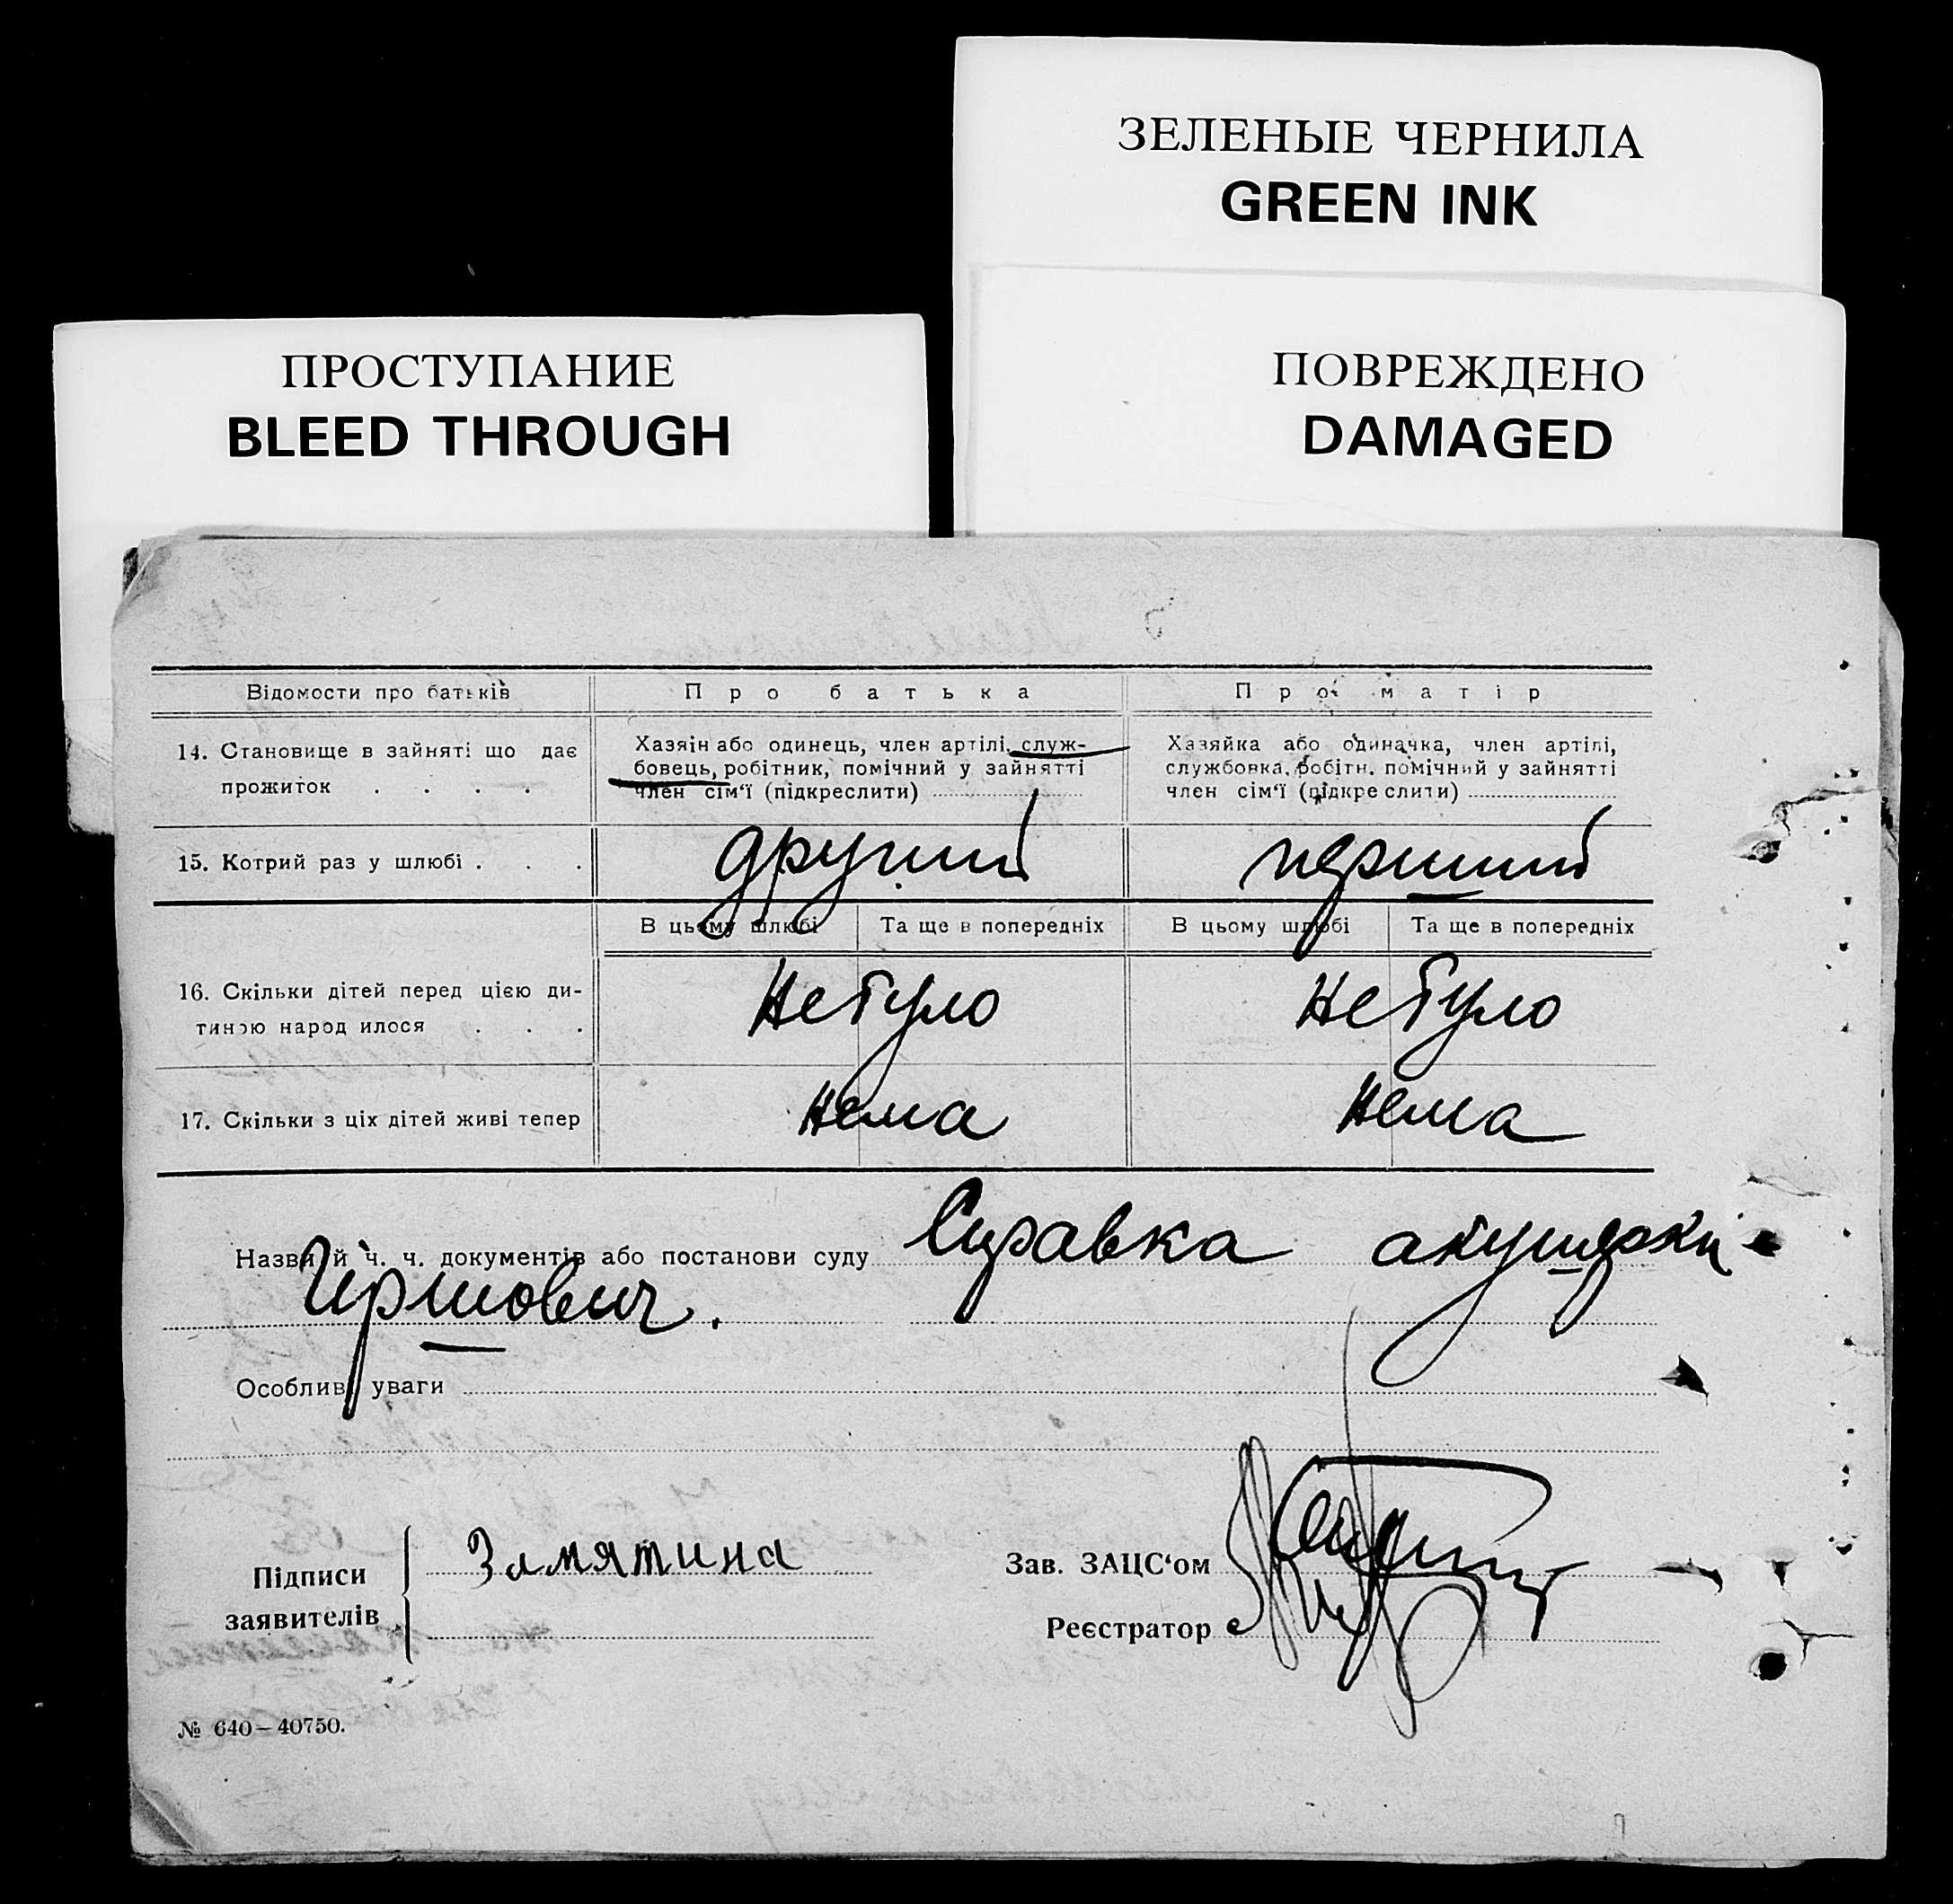 ЗЕЛЕНЫЕ ЧЕРНИЛА
GREEN INK
ПРОСТУПАНИЕ
BLEED THROUGH
ПОВРЕЖДЕНО
DAMAGED
Відомости про батьків
Про батька
Про матір
14. Становище в зайняті що дає
прожиток . . . .
Хазяїн або одинець, член артілі, служ-
бовець, робітник, помічний у зайнятті
член сім'ї (підкреслити)
Хазяйка або одиначка, член артілі,
службовка, робітн. помічний у зайнятті
член сім'ї (підкреслити)
15. Котрий раз у шлюбі . . .
другий
перший
В цьому шлюбі
Та ще в попередніх
В цьому шлюбі
Та ще в попередніх
16. Скільки дітей перед цією ди-
тиною народилося . . .
Не було
Не було
17. Скільки з ціх дітей живі тепер
Нема
Нема
Назви й ч. ч. документів або постанови суду Справка акушерки
Гіршович.
Особливі уваги
Підписи
заявителів
Замятина
Зав. ЗАЦС'ом
Реєстратор
№ 640—40750.